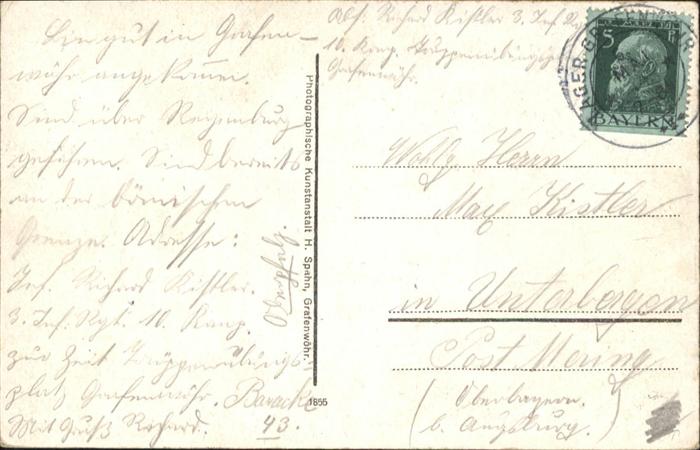 Bin gut in Grafen-
wöhr angekommen.
Sind über Regensburg
gefahren. Sind bereits
an der böhmischen
Grenze. Adresse:
Inf. Richard Kistler.
3. Inf. Rgt. 10. Komp.
zur Zeit Truppenübungs-
platz Grafenwöhr. Baracke
Mit Gruß Richard. 43.
Oberpfalz.
Photographische Kunstanstalt H. Spahn, Grafenwöhr.
1855
Abs: Richard Kistler 3. Inf.
10. Komp. Truppenübungspl
Grafenwöhr.
5 Pf
BAYERN
Wohlg. Herrn
Max Kistler
in Unterbergen
Post Mering
(Oberbayern.
b. Augsburg.)